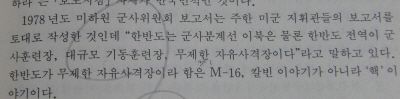 하라"는 '보호지침'
1978년도 미하원 군사위원회 보고서는 주한 미군 지휘관들의 보고서를
토대로 작성한 것인데 "한반도는 군사분계선 이북은 물론 한반도 전역이 군
사훈련장, 대규모 기동훈련장, 무제한 자유사격장이다"라고 말하고 있다.
한반도가 무제한 자유사격장이라 함은 M-16, 칼빈 이야기가 아니라 '핵' 이
야기이다.